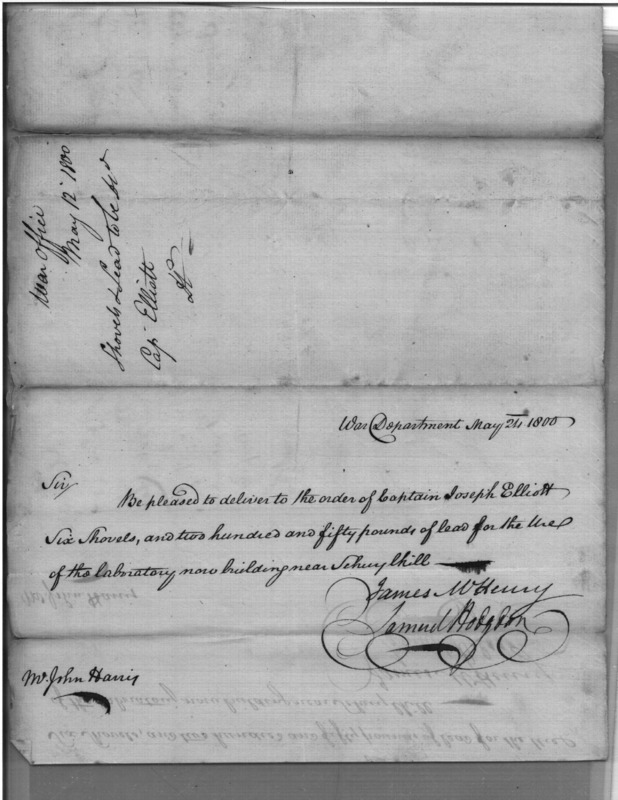 War Office
May 12th 1800
Shovels & Lead to be del'd
Cap. Elliott
War Department May 24 1800
Sir
Be pleased to deliver to the order of Captain Joseph Elliott
Six Shovels, and two hundred and fifty pounds of lead for the Use
of the laboratory now building near Schuylkill
James McHenry
Samuel Hodgdon
Mr. John Harris